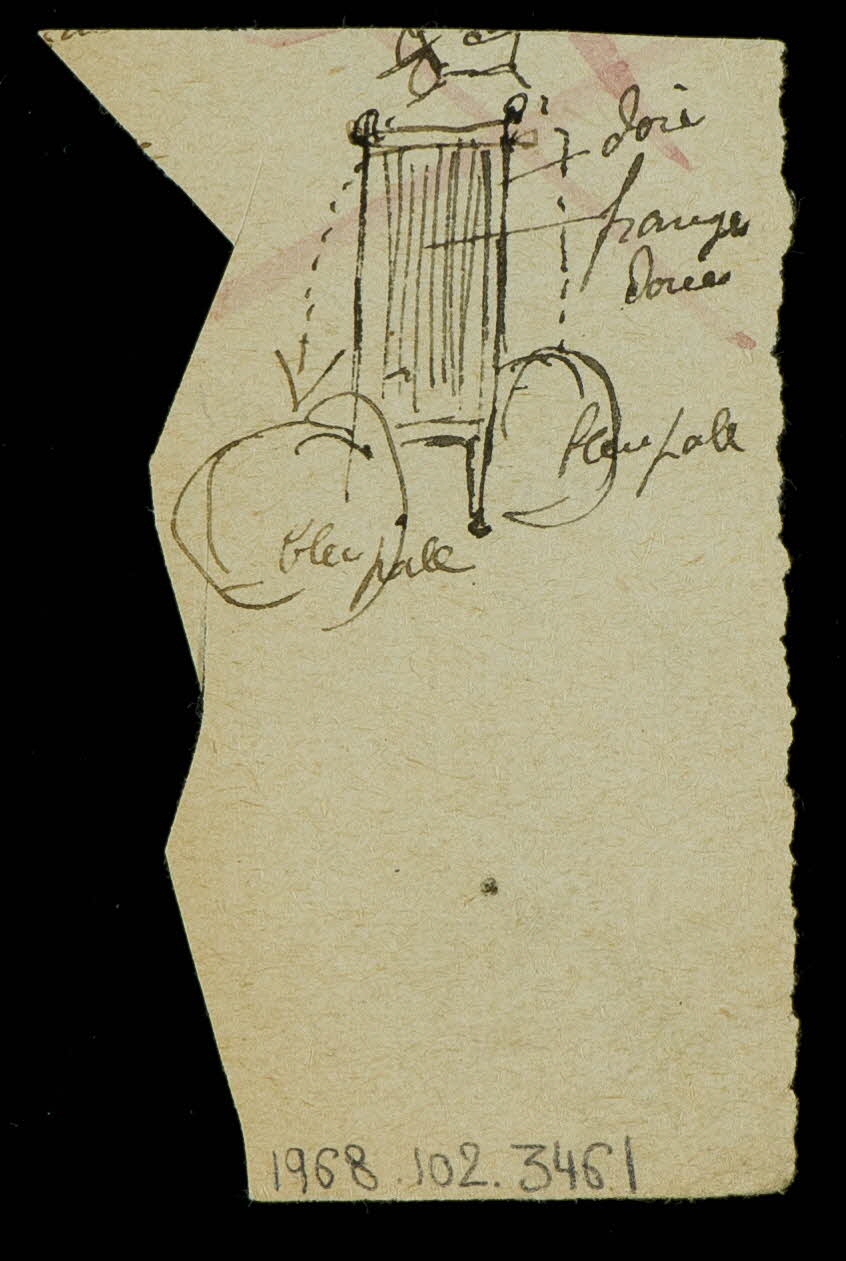 doré
franges
dorées
bleu pale
bleu pale
1968.102.3461